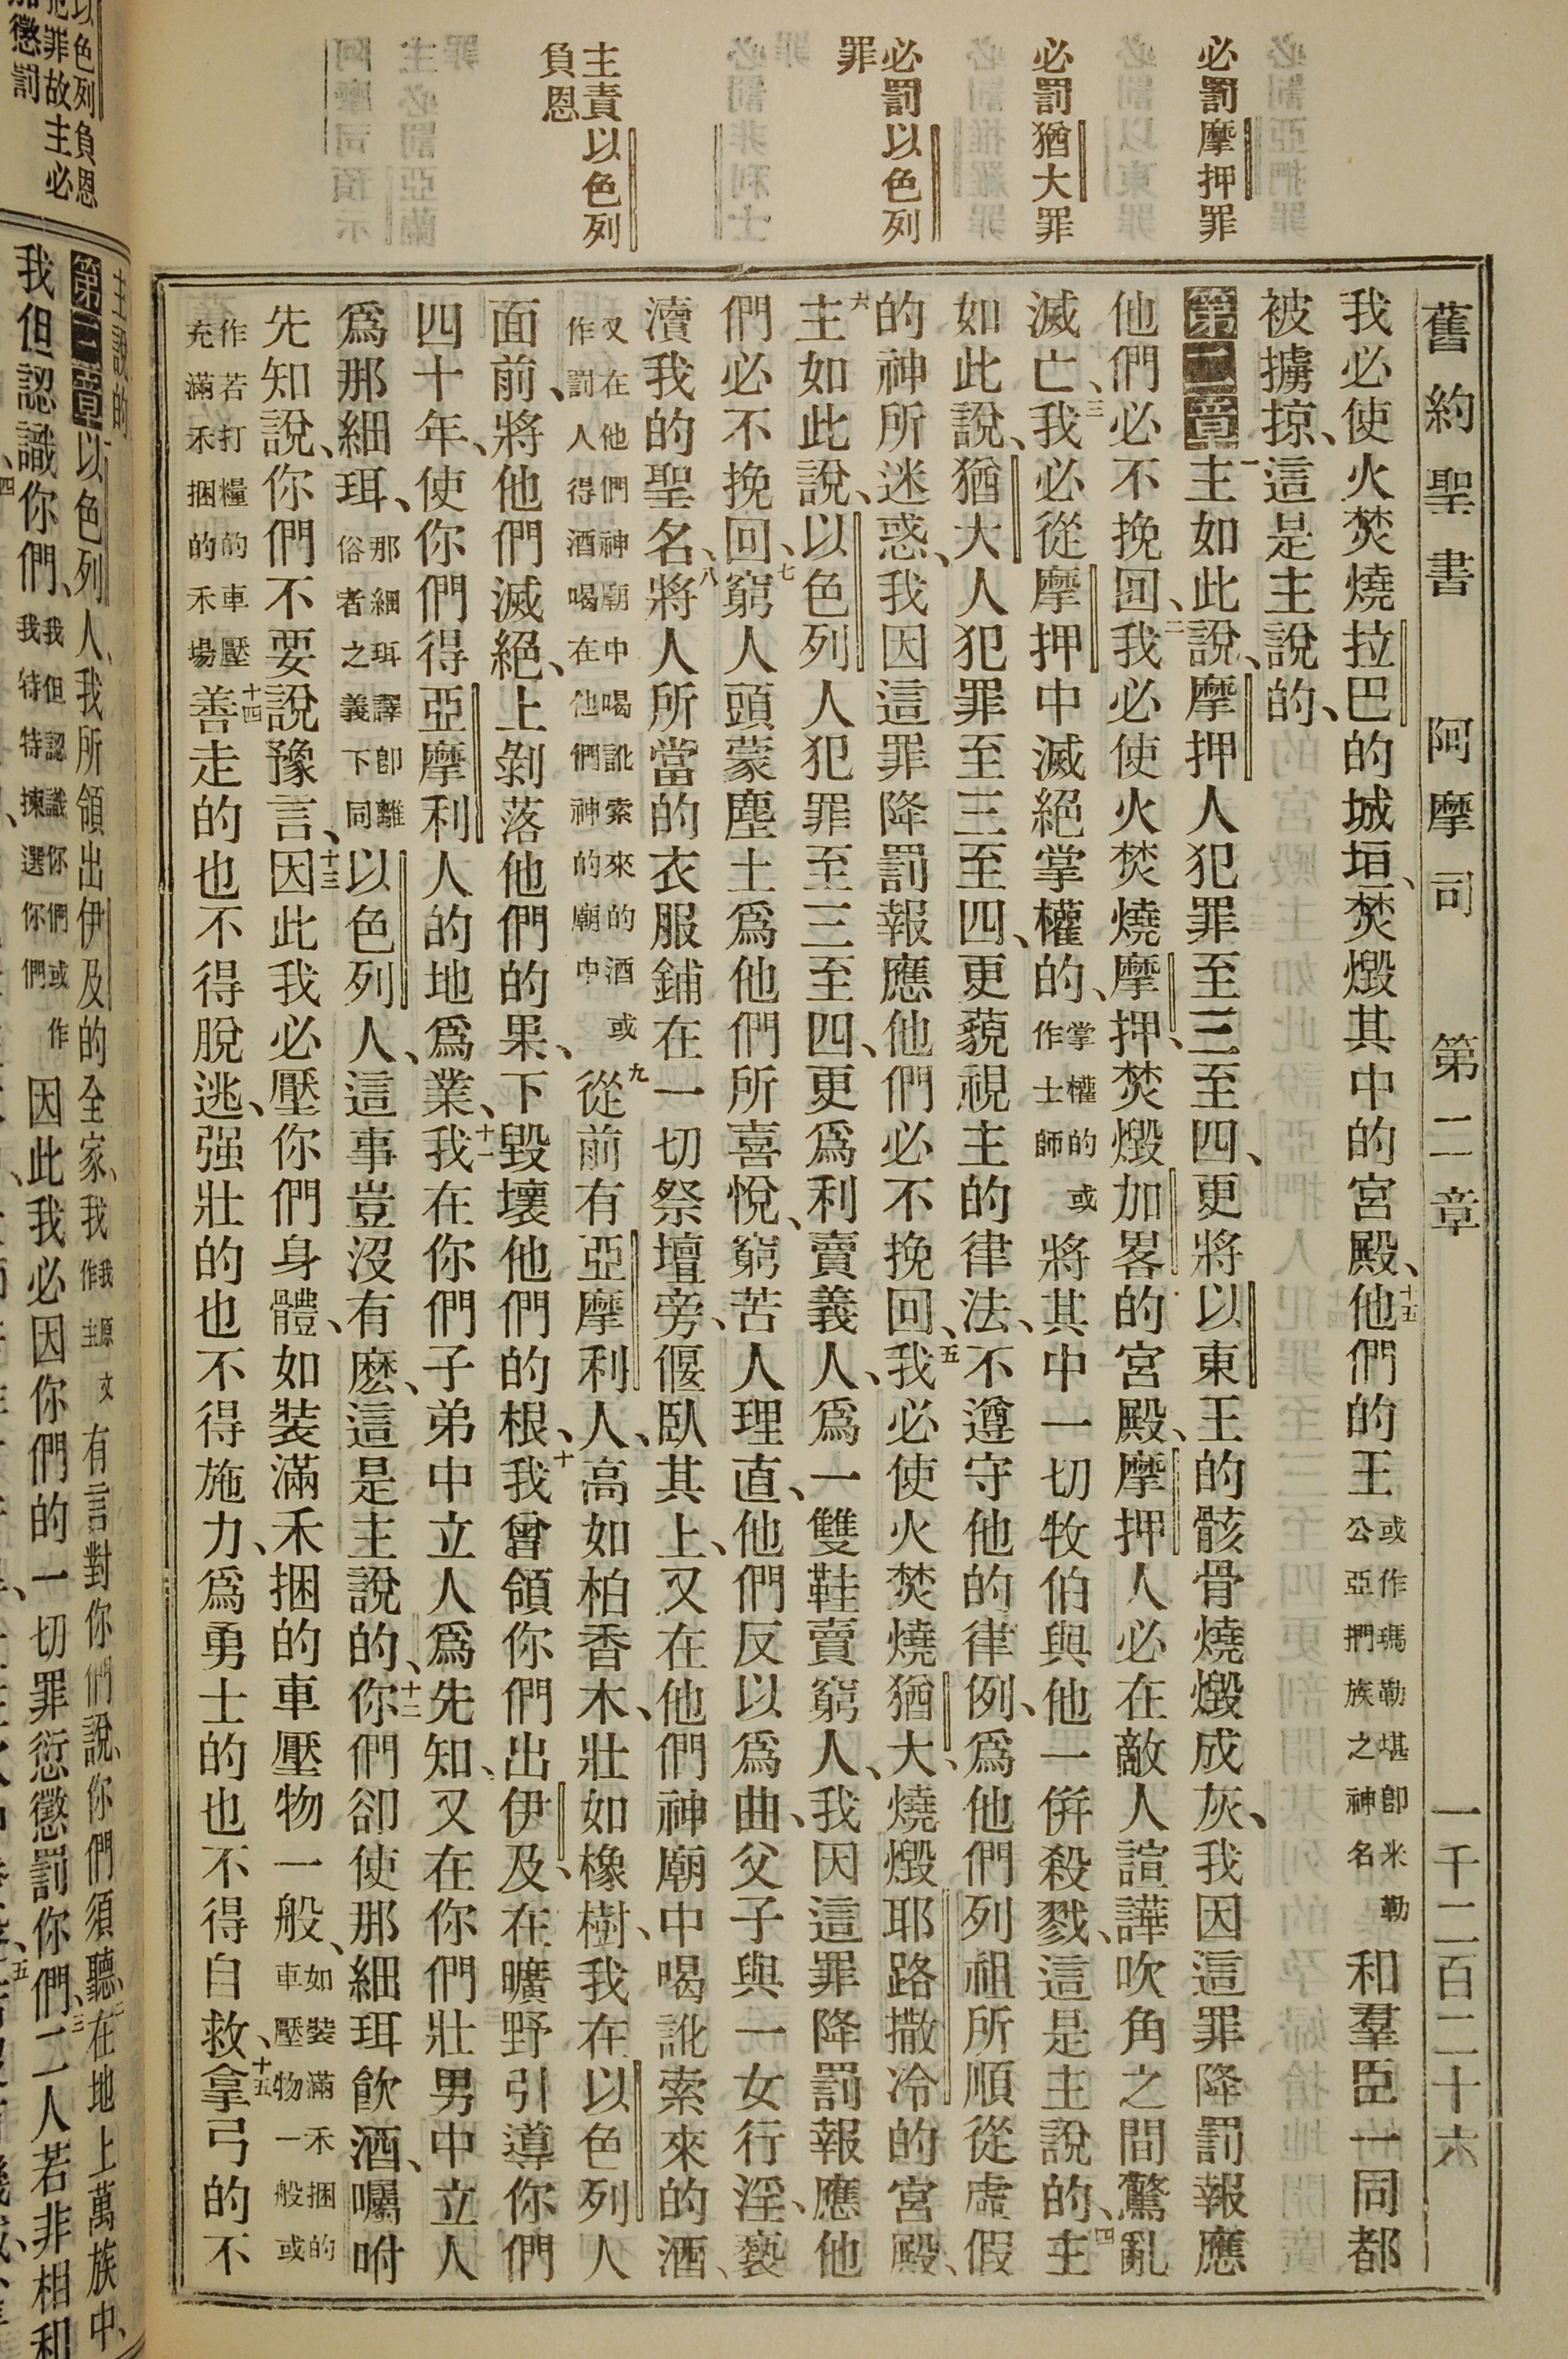 舊約聖書 阿摩司 第二章 一千二百二十六
必罰摩押罪
必罰猶大罪
必罰以色列
罪
主責以色列
負恩
我必使火焚燒拉巴的城垣、焚燬其中的宮殿、十五他們的王或作瑪勒堪卽米勒公亞捫族之神名和羣臣一同都
被擄掠、這是主說的、
第二章一主如此說、摩押人犯罪至三至四、更將以東王的骸骨燒燬成灰、我因這罪降罰報應
他們必不挽回、二我必使火焚燒摩押、焚燬加畧的宮殿、摩押人必在敵人諠譁吹角之間驚亂
滅亡、三我必從摩押中滅絕掌權的、掌權的或作士師將其中一切牧伯與他一倂殺戮、這是主說的、四主
如此說、猶大人犯罪至三至四、更藐視主的律法、不遵守他的律例、爲他們列祖所順從虛假
的神所迷惑、我因這罪降罰報應他們必不挽回、五我必使火焚燒猶大、燒燬耶路撒冷的宮殿、
六主如此說、以色列人犯罪至三至四、更爲利賣義人、爲一雙鞋賣窮人、我因這罪降罰報應他
們必不挽回、七窮人頭蒙塵土爲他們所喜悅、窮苦人理直、他們反以爲曲、父子與一女行淫、褻
瀆我的聖名、八將人所當的衣服鋪在一切祭壇旁、偃臥其上、又在他們神廟中喝訛索來的酒、
又在他們神廟中喝訛索來的酒或作罰人得酒喝在他們神的廟中九從前有亞摩利人、高如柏香木、壯如橡樹、我在以色列人
面前、將他們滅絕、上剝落他們的果、下毀壞他們的根、十我曾領你們出伊及、在曠野引導你們
四十年、使你們得亞摩利人的地爲業、十一我在你們子弟中立人爲先知、又在你們壯男中立人
爲那細珥、那細珥譯卽離俗者之義下同以色列人、這事豈沒有麽、這是主說的、十二你們卻使那細珥飮酒、囑咐
先知說、你們不要說豫言、十三因此我必壓你們身體、如裝滿禾捆的車壓物一般、如裝滿禾捆的車壓物一般或
作若打糧的車壓充滿禾捆的禾場十四善走的也不得脫逃、强壯的也不得施力、爲勇士的也不得自救、十五拿弓的不
以色列負恩
犯罪故主必
加懲罰
主說的
第三章以色列人、我所領出伊及的全家、我我原文作主有言對你們說、你們須聽、二在地上萬族中、
我但認識你們、我但認識你們或作我特特揀選你們因此我必因你們的一切罪愆懲罰你們、三二人若非相和